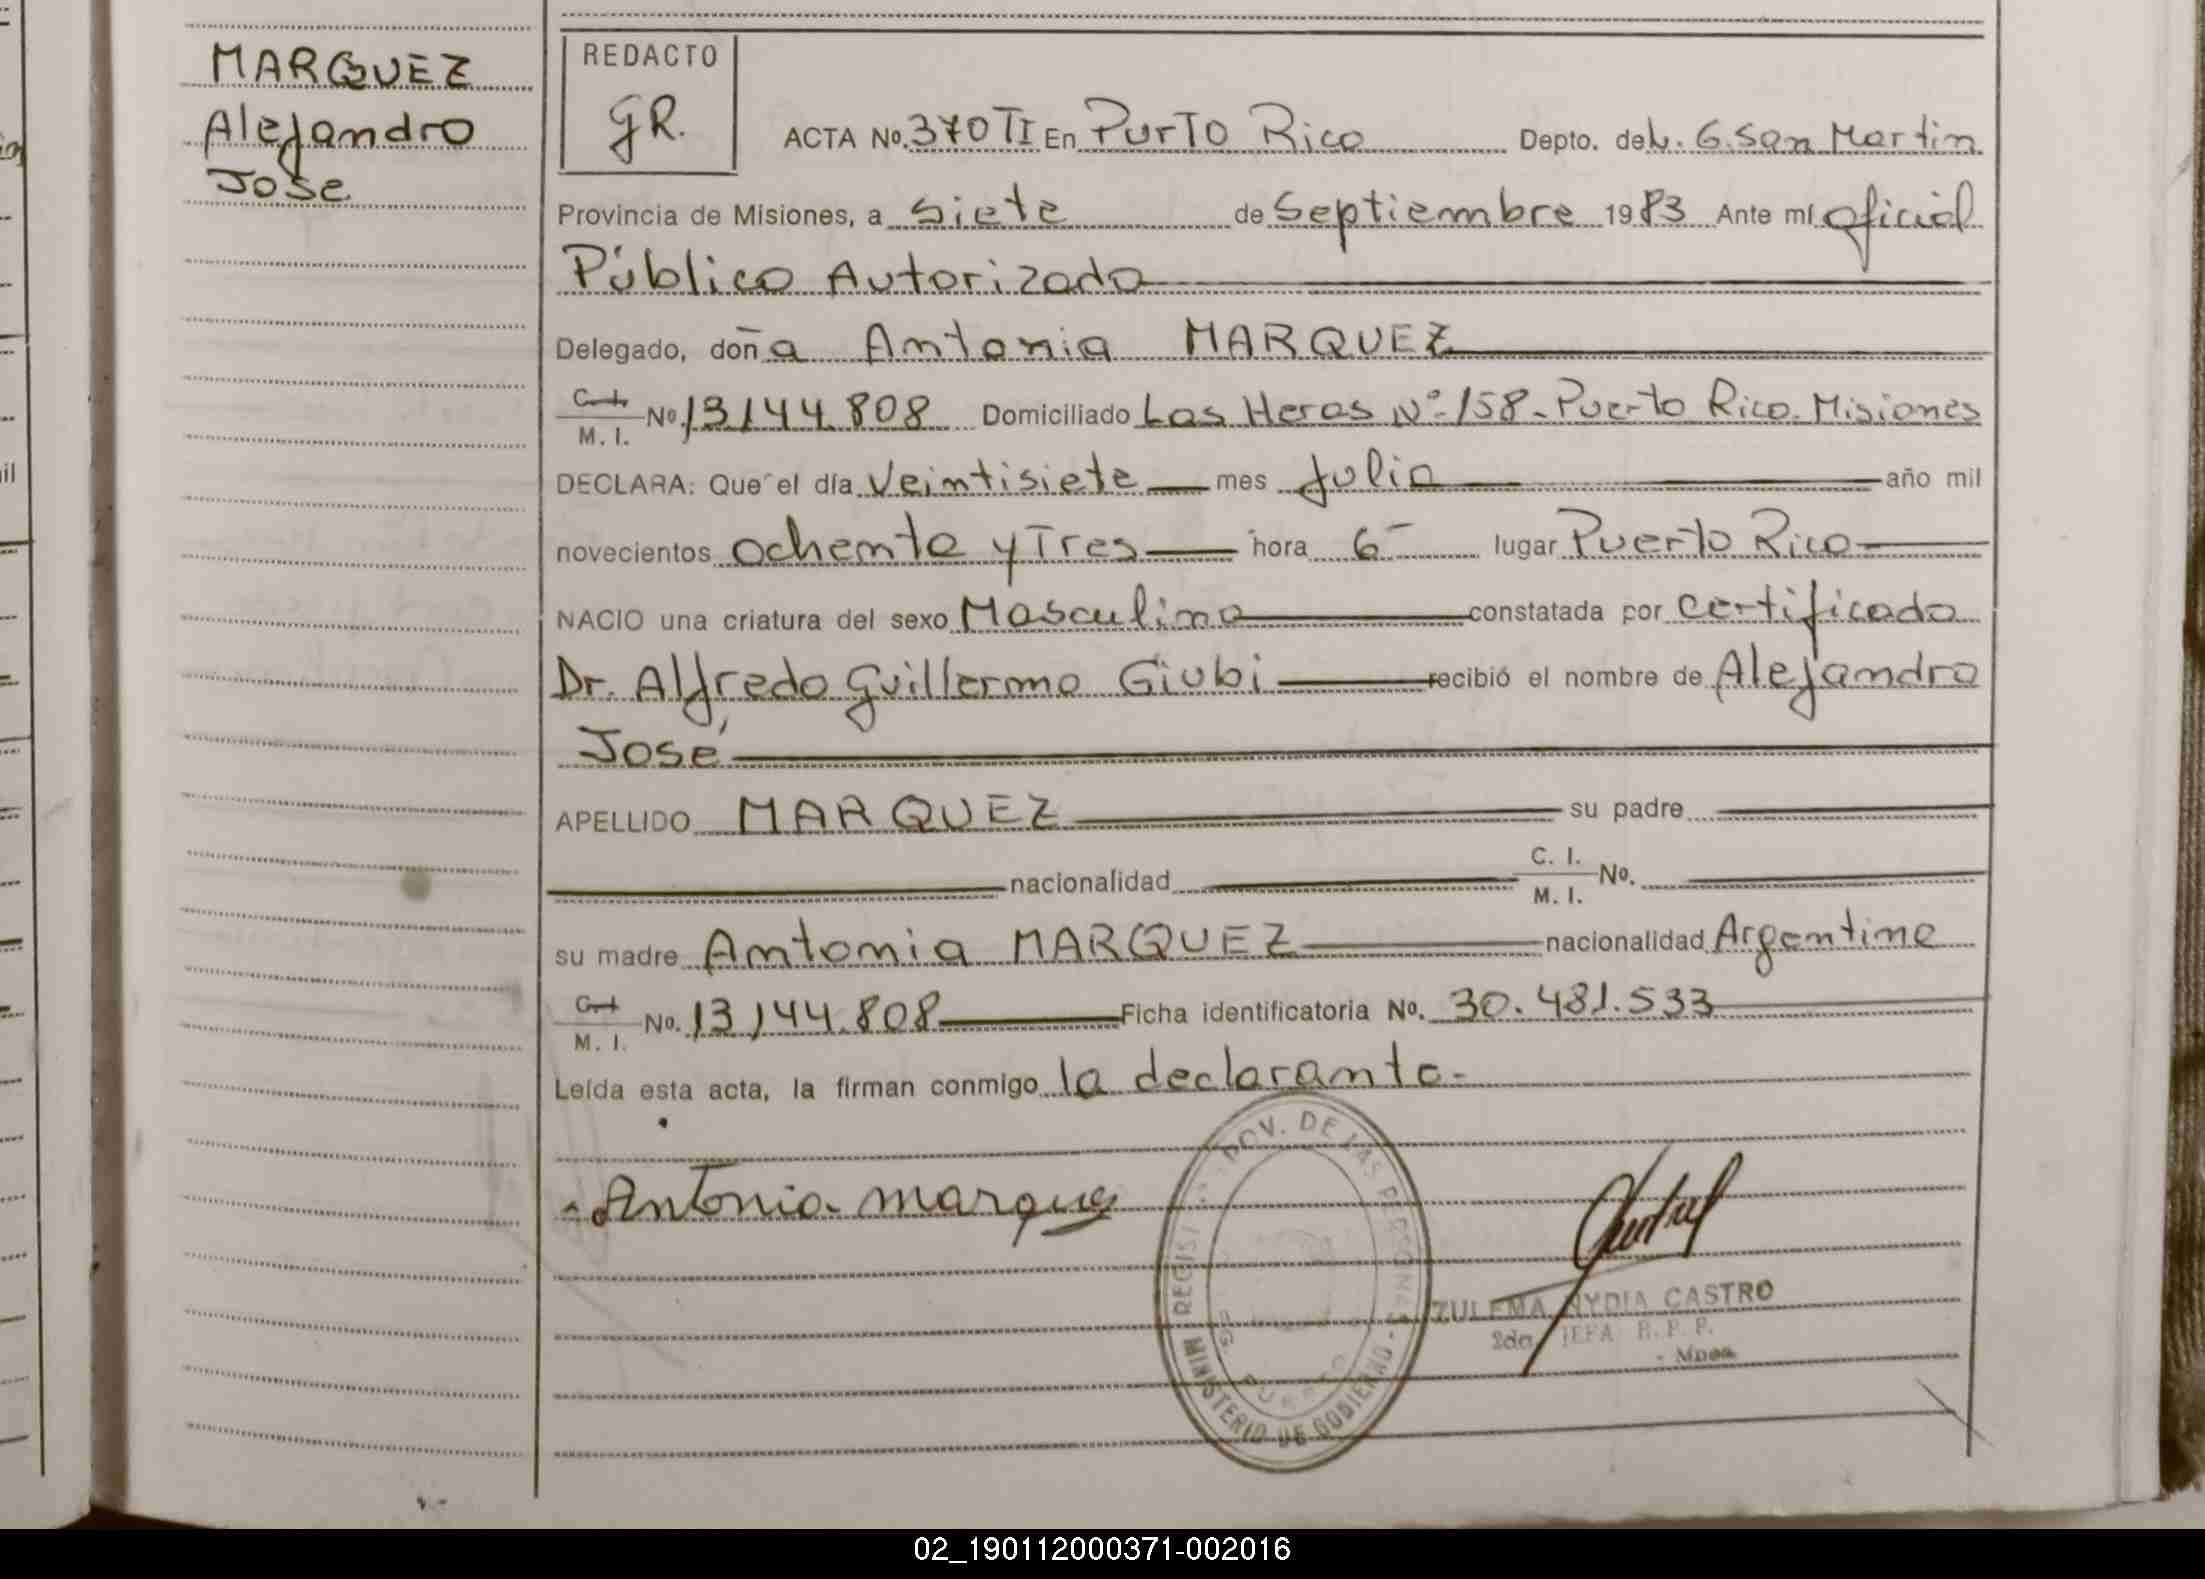 MARQUEZ
Alejandro
Jose
REDACTO
GR.
ACTA No. 370 TI En PurTo Rico Depto. de L. G. San Martin
Provincia de Misiones, a Siete de Septiembre 1983 Ante mí oficial
Público Autorizado
Delegado, doña Antonia MARQUEZ
C. I.
M. I. No. 13.144.808 Domiciliado Las Heras Nº 158 - Puerto Rico. Misiones
DECLARA: Que el día Veintisiete mes Julio año mil
novecientos ochenta y Tres hora 6 lugar Puerto Rico
NACIO una criatura del sexo Masculino constatada por certificado
Dr. Alfredo Guillermo Giubi recibió el nombre de Alejandro
José
APELLIDO MARQUEZ su padre
nacionalidad C. I.
M. I. No.
su madre Antonia MARQUEZ nacionalidad Argentina
C. I.
M. I. No. 13.144.808 Ficha identificatoria No. 30.481.533
Leída esta acta, la firman conmigo la declarante.-
Antonia marquez
PROV. DE LAS PERSONAS
MINISTERIO DE GOBIERNO
PUERTO
ZULEMA NYDIA CASTRO
2da JEFA R. P. P.
- Mnes
02_190112000371-002016